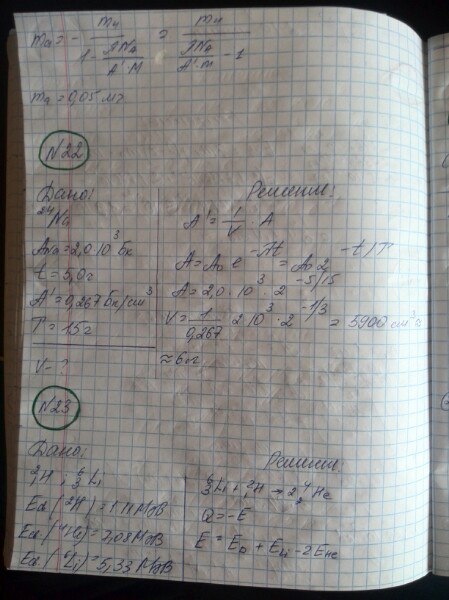 mₐ = - mч / (1 - λNA / A'·M) = mч / (λNA / A'·M - 1)
mₐ = 0,05 мг
N22
Дано:
²⁴Na
ANa = 2,0·10³ Бк
t = 5,0 г
A' = 0,267 Бк/см³
T = 15 г
V - ?
Решение:
A' = 1/V · A
A = A₀ e^-λt = A₀ 2^-t/T
A = 2,0·10³ · 2^-5/15
V = 1/0,267 · 2·10³ · 2^-1/3 = 5900 см³ ≈
≈ 6 л
N23
Дано:
²₁H, ⁶₃Li
Eα (²H) = 1,11 МэВ
Eα (⁴He) = 7,08 МэВ
Eα (⁶Li) = 5,33 МэВ
Решение:
⁶₃Li + ²₁H → 2⁴₂He
Q = -E
E = ED + ELi - 2EHe